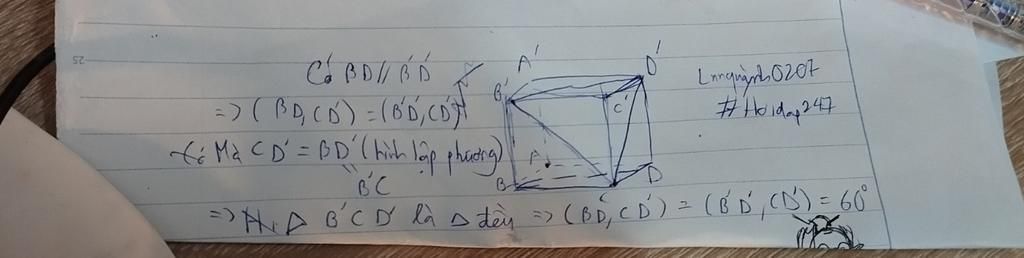 Có BD // B'D'
=> (BD, CD') = (B'D', CD')
Mà CD' = BD' (hình lập phương)
" B'C
=> Δ B'CD' là Δ đều => (BD, CD') = (B'D', CD') = 60°
A'
D'
B'
C'
A
B
D
Lnnquynh0207
#Hoidap247
25